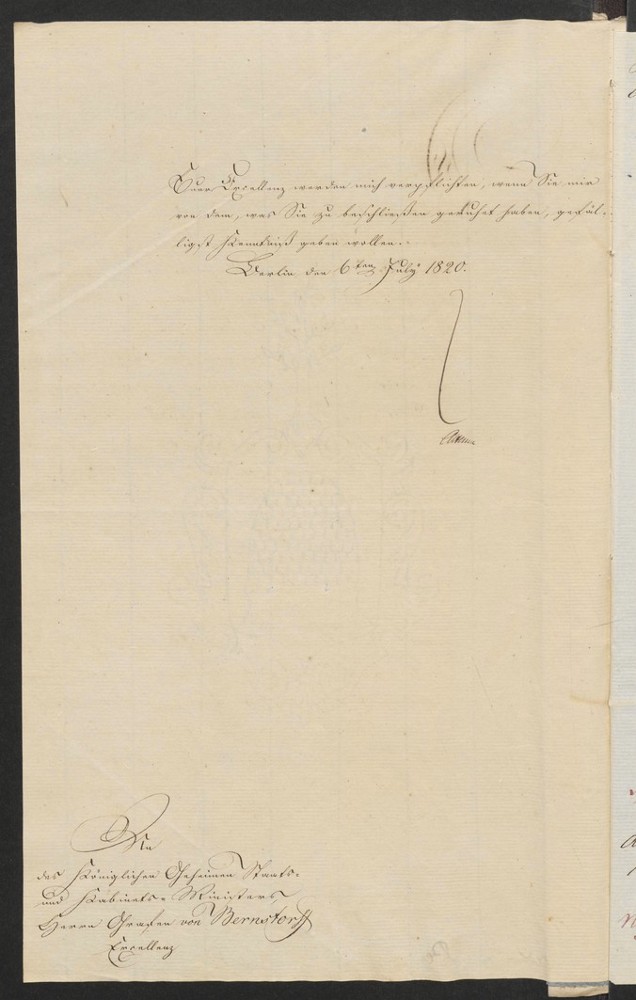 Euer Excellenz werden mich verpflichten, wenn Sie mir
von dem, was Sie zu beschließen geruhet haben, gefäl-
ligst Kenntniß geben wollen.
Berlin den 6ten July 1820.
An
des Königlichen Geheimen Staats-
und Kabinets-Ministers
Herrn Grafen von Bernstorff
Excellenz